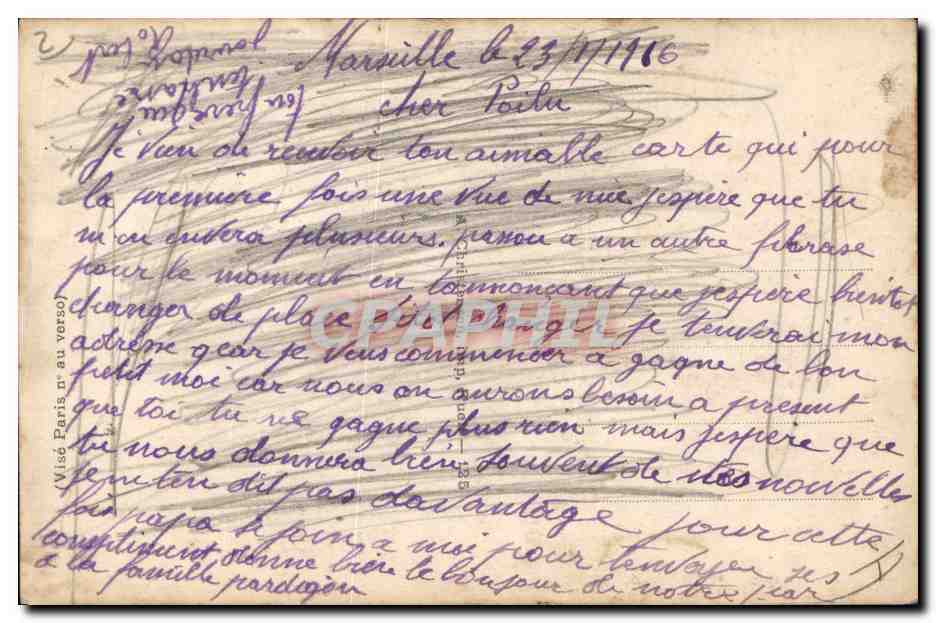 2
Marseille le 23/1/1916
cher Poilu
Je vien de recevoir ton aimable carte qui pour
la première fois une vue de nice j'espère que tu
m'en envera plusieurs. passon a un autre phrase
pour le moment en t'anonçant que j'espère bientot
changer de place je tenverai mon
adresse car je veus commencer a gagné de bon
petit moi car nous en aurons besoin a present
que toi tu ne gagne plus rien mais j'espère que
tu nous donnera bien souvent de tes nouvelles
je n'ten dit pas davantage pour cette
fois papa se join a moi pour tenvoyer ses
compliment donne bien le bonjour de notre par
a la famille pardigon
ton frère qui
Robert
(Visé Paris nº au verso)
CPAPHIL